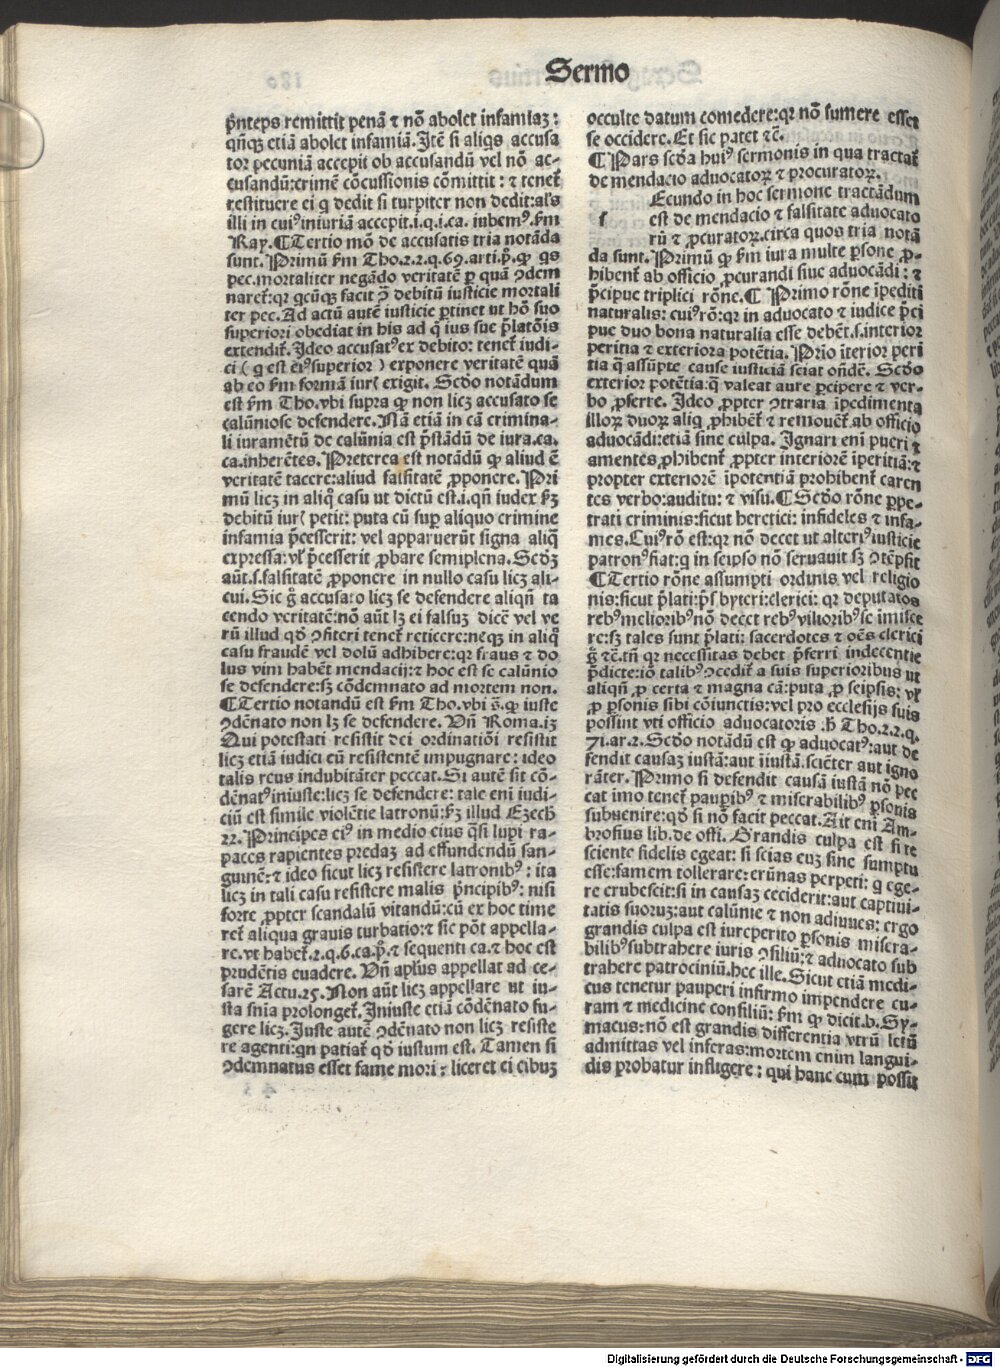 Sermo
p̄nceps remittit penā ⁊ nō abolet infamiaꝫ:
qn̄qꝫ etiā abolet infamiā. Itē si aliqs accusa
tor pecuniā accepit ob accusandū vel nō ac-
cusandū: crimē cōcussionis cōmittit: ⁊ tenet̄
restituere ei q dedit si turpiter non dedit: al's
illi in cuiꝰ iniuriā accepit. i. q. i. ca. iubemꝰ. ẜm
Ray. ¶ Tertio mō de accusatis tria notāda
sunt. Primū ẜm Tho. 2. 2. q. 69. arti. p̄. ꝙ qs
pec. mortaliter negādo veritatē ꝑ quā ꝯdem
naret̄: qr qcūqꝫ facit ꝯ debitū iusticie mortali
ter pec. Ad actū autē iusticie ꝑtinet ut hō suo
superiori obediat in his ad q̄ ius sue p̄latōis
extendit̄. Ideo accusatꝰ ex debito: tenet̄ iudi-
ci (q est eiꝰ superior) exponere veritatē quā
ab eo ẜm formā iur̄ exigit. Scd̄o notādum
est ẜm Tho. vbi supra ꝙ non licꝫ accusato se
calūniose defendere. Nā etiā in cā crimina-
li iuramētū de calūnia est p̄stādū de iura. ca.
ca. inherētes. Preterea est notādū ꝙ aliud ē
veritatē tacere: aliud falsitatē ꝓponere. Pri
mū licꝫ in aliq̄ casu ut dictū est. i. qn̄ iudex ẜꝫ
debitū iur̄ petit: puta cū suꝑ aliquo crimine
infamia p̄cesserit: vel apparuerūt signa aliq̄
expressa: vl' p̄cesserit ꝓbare semiplena. Secd̄ꝫ
aūt. s. falsitatē ꝓponere in nullo casu licꝫ ali-
cui. Sic g̊ accusato licꝫ se defendere aliqn̄ ta
cendo veritatē: nō aūt lꝫ ei falsuꝫ dicē vel ve
rū illud qd̄ ꝯfiteri tenet̄ reticere: neqꝫ in aliq̊
casu fraudē vel dolū adhibere: qr fraus ⁊ do
lus vim habēt mendacij: ⁊ hoc est se calūnio
se defendere: sꝫ cōdemnato ad mortem non.
¶ Tertio notandū est ẜm Tho. vbi s̄. ꝙ iuste
ꝯdēnato non lꝫ se defendere. Un̄ Roma. i3
Qui potestati resistit dei ordinatiōi resistit
licꝫ etiā iudici eū resistentē impugnare: ideo
talis reus indubitāter peccat. Si autē sit cō-
dēnatꝰ iniuste: licꝫ se defendere: tale eni iudi-
ciū est simile violētie latronū: ẜꝫ illud Ezech
22. Principes eiꝰ in medio eius q̄si lupi ra-
paces rapientes predaꝫ ad effundendū san-
guinē: ⁊ ideo sicut licꝫ resistere latronibꝰ: ita
licꝫ in tali casu resistere malis p̄ncipibꝰ: nisi
forte ꝓpter scandalū vitandū: cū ex hoc time
ret̄ aliqua grauis turbatio: ⁊ sic pōt appella-
re. vt habet̄. 2. q. 6. ca. p̄. ⁊ sequenti ca. ⁊ hoc est
prudētis euadere. Un̄ apl'us appellat ad ce-
sarē Actu. 25. Non aūt licꝫ appellare ut iu-
sta sn̄ia prolonget̄. Iniuste etiā cōdēnato fu-
gere licꝫ. Iuste autē ꝯdēnato non licꝫ resiste
re agenti: qn patiat̄ qd̄ iustum est. Tamen si
ꝯdemnatus esset fame mori: liceret ei cibuꝫ
occulte datum comedere: qr nō sumere esset
se occidere. Et sic patet ⁊c̄.
¶ Pars scd̄a huiꝰ sermonis in qua tractat̄
de mendacio aduocatoꝝ ⁊ procuratoꝝ.
Ecundo in hoc sermone tractādum
ſ est de mendacio ⁊ falsitate aduocato
rū ⁊ ꝓcuratoꝝ. circa quos tria notā
da sunt. Primū ꝙ ẜm iura multe ꝑsone ꝓ-
hibent̄ ab officio ꝓcurandi siue aduocādi: ⁊
p̄cipue triplici rōne. ¶ Primo rōne īpediti
naturalis: cuiꝰ rō: qr in aduocato ⁊ iudice p̄ci
pue duo bona naturalia esse debēt. s. interior
peritia ⁊ exteriora potētia. Prio īterior peri
tia q̄ assūpte cause iusticiā sciat ondē. Scd̄o
exterior potētia: q̄ valeat aure ꝑcipere ⁊ ver-
bo ꝓferre. Ideo ꝓpter ꝯtraria īpedimenta
illoꝝ duoꝝ aliq̄ ꝓhibēt̄ ⁊ remouēt̄ ab officio
aduocādi: etiā sine culpa. Ignari eni pueri ⁊
amentes ꝓhibent̄ ꝓpter interiorē īperitiā: ⁊
propter exteriorē īpotentiā prohibent̄ caren
tes verbo: auditu: ⁊ visu. ¶ Scd̄o rōne ꝑpe-
trati criminis: sicut heretici: infideles ⁊ infa-
mes. Cuiꝰ rō est: qr nō decet ut alteriꝰ iusticie
patronꝰ fiat: q in seipso nō seruauit sꝫ ꝯtēpsit
¶ Tertio rōne assumpti ordinis vel religio
nis: sicut p̄lati: p̄sbyteri: clerici: qr deputatos
rebꝰ melioribꝰ nō decet rebꝰ vilioribꝰ se imisce
re: sꝫ tales sunt p̄lati: sacerdotes ⁊ oēs clerici
g̊ ⁊c̄. tn̄ qr necessitas debet p̄ferri indecentie
p̄dicte: iō talibꝰ ꝯcedit̄ a suis superioribus ut
aliqn̄ ꝓ certa ⁊ magna cā: puta ꝓ seipsis: vl'
ꝓ ꝑsonis sibi cōiunctis: vel pro ecclesijs suis
possint vti officio aduocatoris. h̄ Tho. 2. 2. q.
71. ar. 2. Scd̄o notādū est ꝙ aduocatꝰ: aut de
fendit causaꝫ iustā: aut īiustā. sciēter aut igno
rāter. Primo si defendit causā iustā nō pec
cat imo tenet̄ pauꝑibꝰ ⁊ miserabilibꝰ ꝑsonis
subuenire: qd̄ si nō facit peccat. Ait eni Am-
brosius lib. de offi. Grandis culpa est si te
sciente fidelis egeat: si scias euꝫ sine sumptu
esse: famem tollerare: erūnas perpeti: q ege-
re erubescit: si in causaꝫ ceciderit: aut captiui-
tatis suoruꝫ: aut calūnie ⁊ non adiuues: ergo
grandis culpa est iureperito ꝑsonis misera-
bilibꝰ subtrahere iuris ꝯsiliū: ⁊ aduocato sub
trahere patrociniū. hec ille. Sicut etiā medi-
cus tenetur pauperi infirmo impendere cu-
ram ⁊ medicine consiliū: ẜm ꝙ dicit. b. Sy-
macus: nō est grandis differentia vtrū letū
admittas vel inferas: mortem enim langui-
dis probatur infligere: qui hanc cum possit
Digitalisierung gefördert durch die Deutsche Forschungsgemeinschaft - DFG